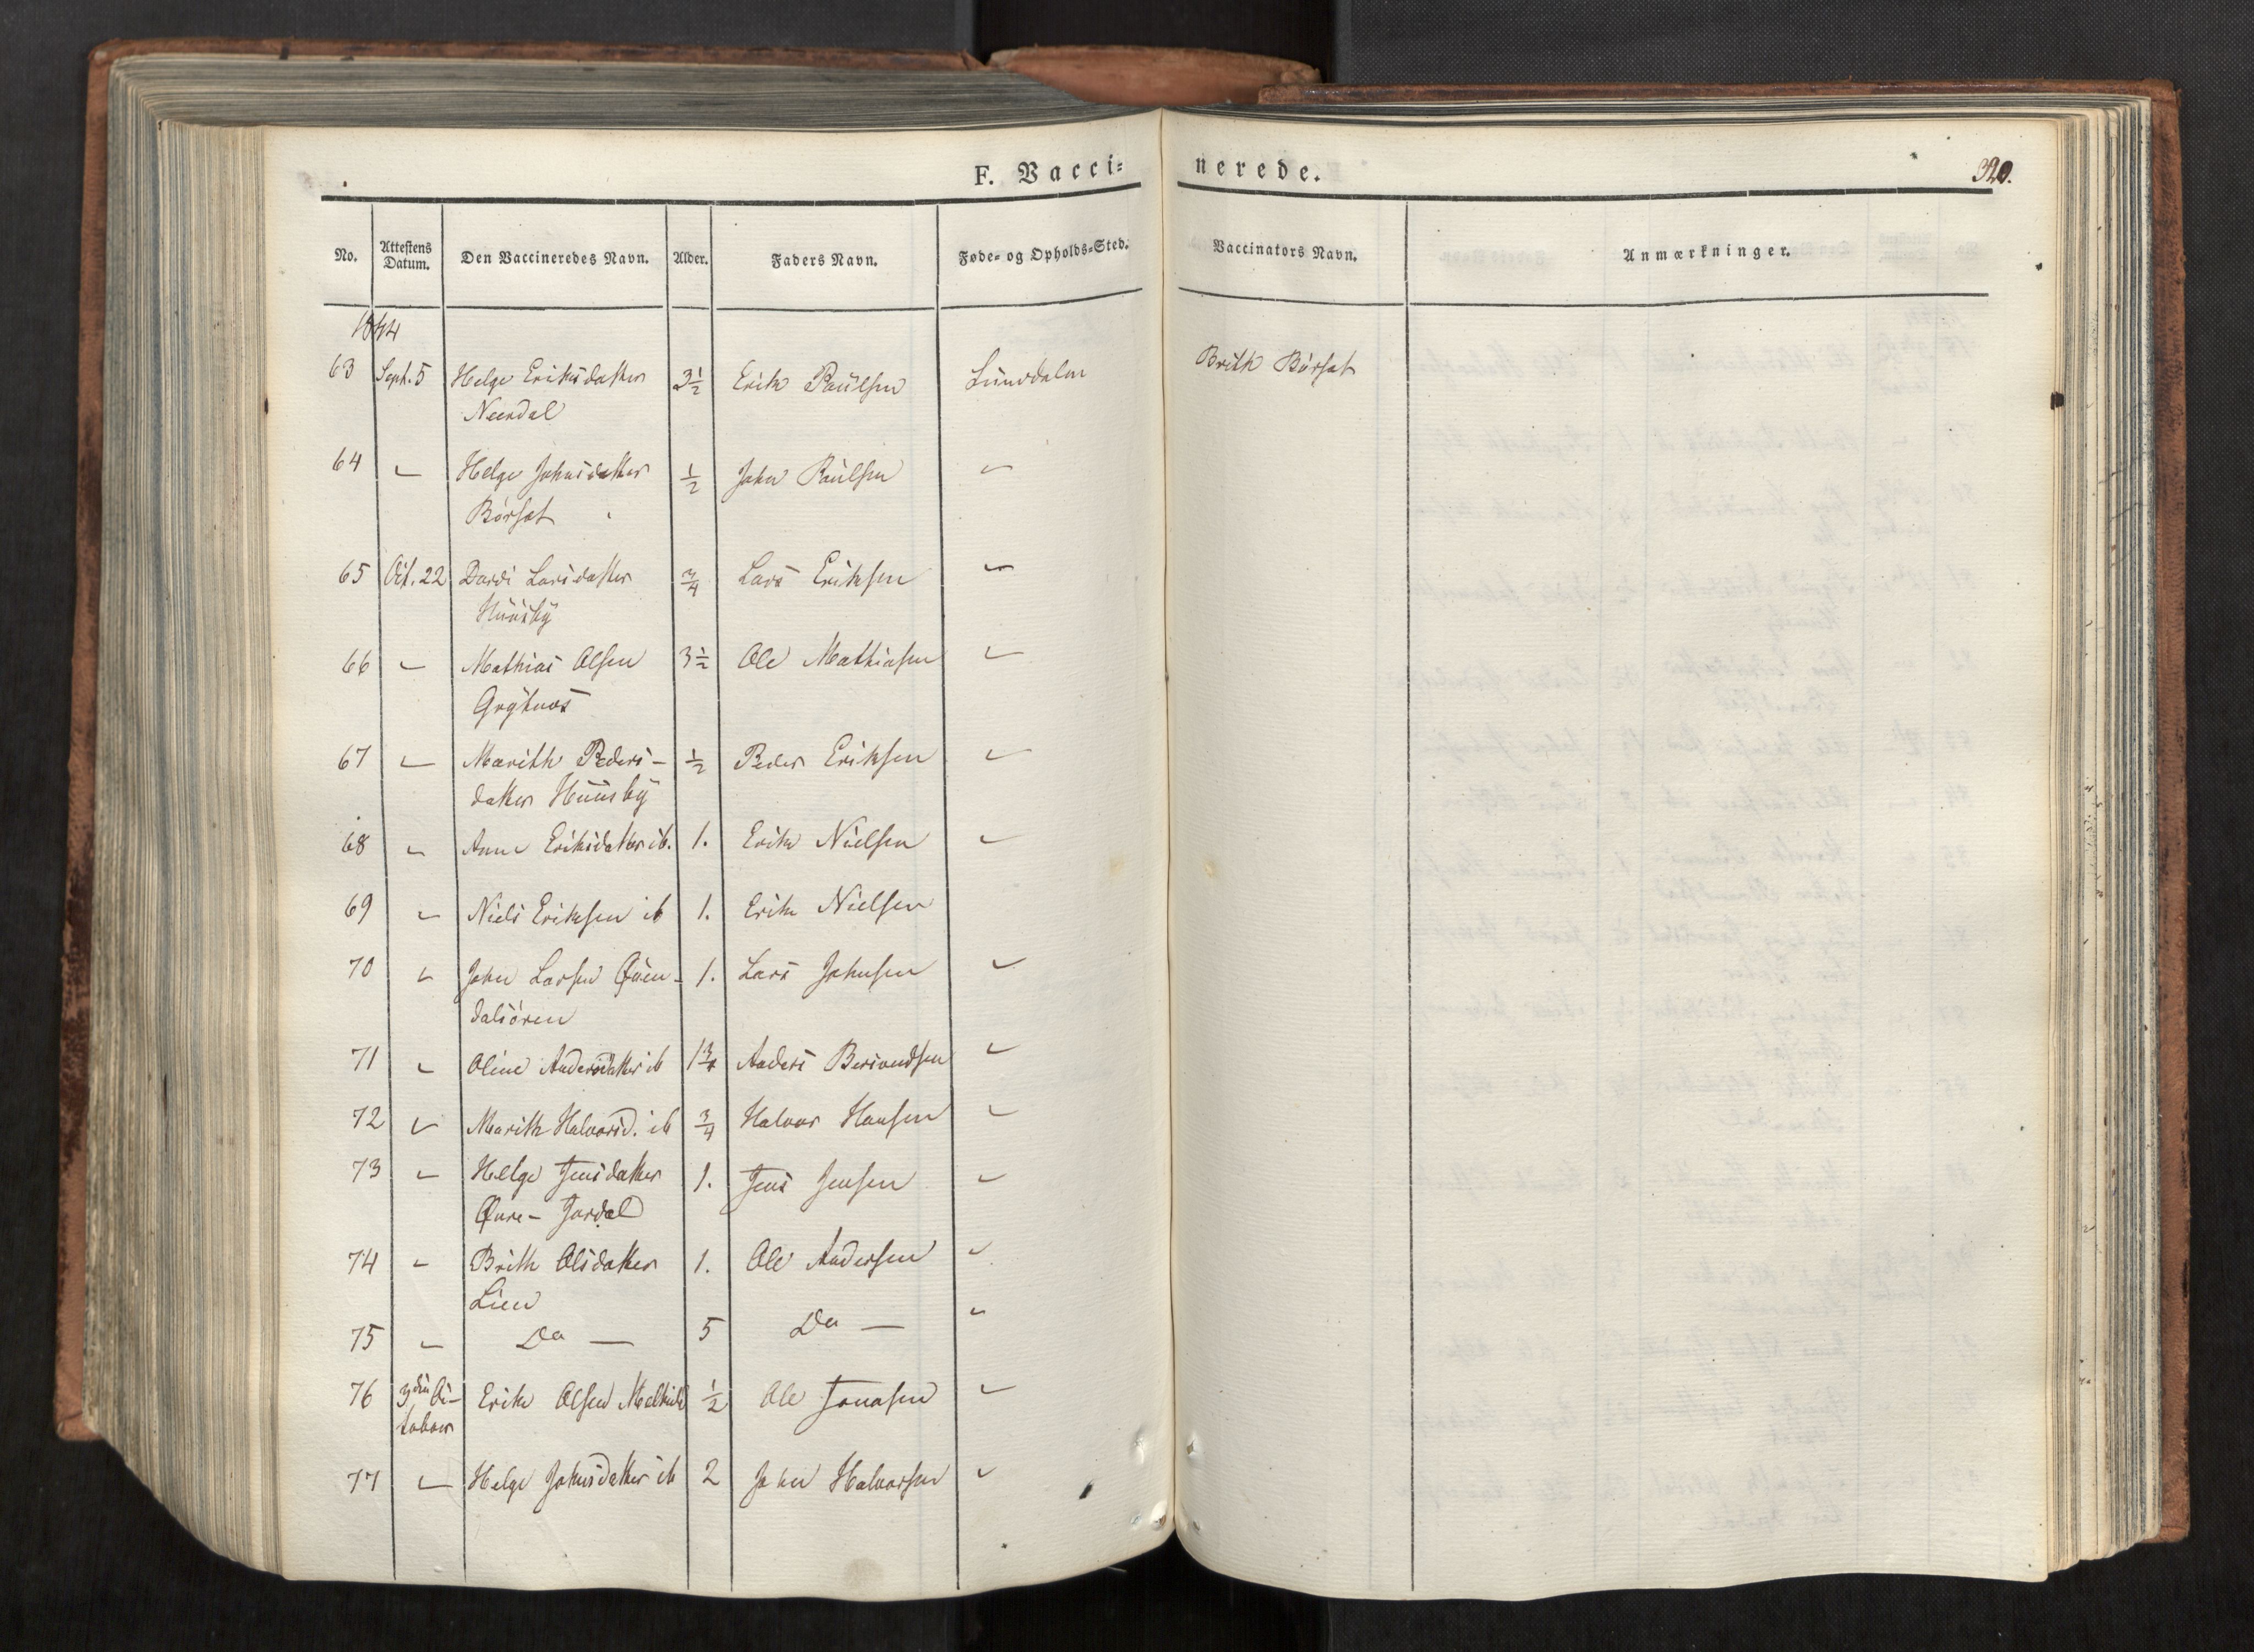 F. Vacci=
nerede.
320.
No.
Attestens Datum.
Den Vaccineredes Navn.
Alder.
Faders Navn.
Føde- og Opholds-Sted.
Vaccinators Navn.
Anmærkninger.
1844
63 Sept. 5 Helge Eriksdatter 3½ Erik Paülsen Sünddalen Brith Børset
Neerdal
64 〃 Helge Johnsdatter ½ John Paülsen 〃
Børset
65 Oct. 22 Dordi Larsdatter ¾ Lars Eriksen 〃
Hüüsby
66 〃 Mathias Olsen 3½ Ole Mathiasen 〃
Grytnes
67 〃 Marith Peders- ½ Peder Eriksen 〃
datter Hüüsby
68 〃 Anne Eriksdatter ib. 1. Erik Nielsen 〃
69 〃 Niels Eriksen ib 1. Erik Nielsen
70 〃 John Larsen Øxen- 1. Lars Johnsen 〃
dalsøren
71 〃 Oline Andersdatter ib 1¾ Anders Bersvendsen 〃
72 〃 Marith Halvorsd. ib ¾ Halvor Hansen 〃
73 〃 Helge Jensdatter 1. Jens Jensen 〃
Øvre- Jordal
74 〃 Brith Olsdatter 1. Ole Andersen 〃
Lien
75 〃 Do — 5 Do — 〃
76 3die Oc- Erik Olsen ½ Ole Jonasen 〃
tober
77 〃 Helge Johnsdatter ib 2 John Halvorsen 〃